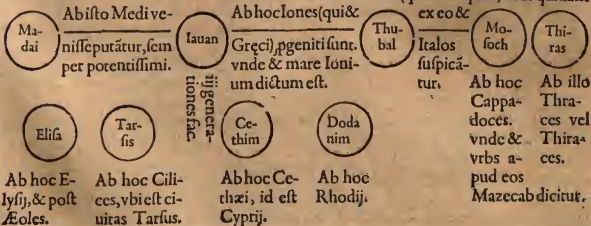 Madai
Ab isto Medi ve-
nisse putātur, sem
per potentissimi.
Iauan
Ab hoc Iones (qui &
Gręci) ,pgeniti sunt.
vnde & mare Ioni-
um dictum est.
iiij genera-
tiones fac.
Thu-
bal
ex eo &
Italos
suspicā-
tur.
Mo-
soch
Ab hoc
Cappa-
doces.
vnde &
vrbs a-
pud eos
Mazecab dicitur.
Thi-
ras
Ab illo
Thra-
ces vel
Thira-
ces.
Elisa
Ab hoc E-
lysij, & post
Æoles.
Tar-
sis
Ab hoc Cili-
ces, vbi est ci-
uitas Tarsus.
Ce-
thim
Ab hoc Ce-
thæi, id est
Cyprij.
Doda
nim
Ab hoc
Rhodij.